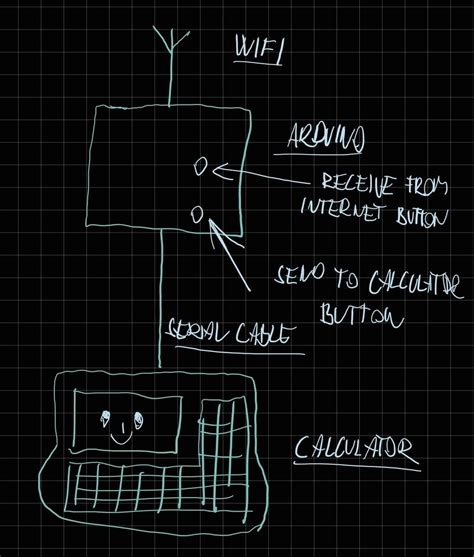 WIFI
ARDUINO
RECEIVE FROM
INTERNET BUTTON
SEND TO CALCULATOR
BUTTON
SERIAL CABLE
CALCULATOR